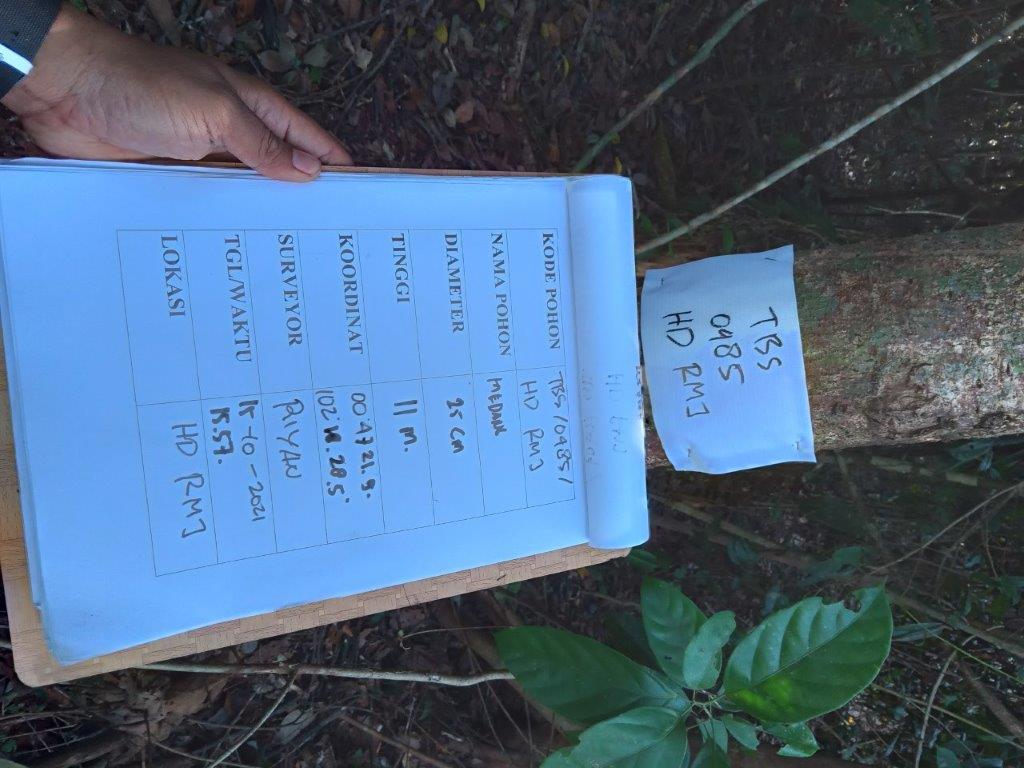 TBS
0485
HD RMJ
KODE POHON TBS/0485/
HD RMJ
NAMA POHON MEDANG
DIAMETER 25 cm
TINGGI 11 M.
KOORDINAT 00°47'21.9"
102° 28.5"
SURVEYOR RIYAN
TGL/WAKTU 15-10-2021
15.57.
LOKASI HD RMJ